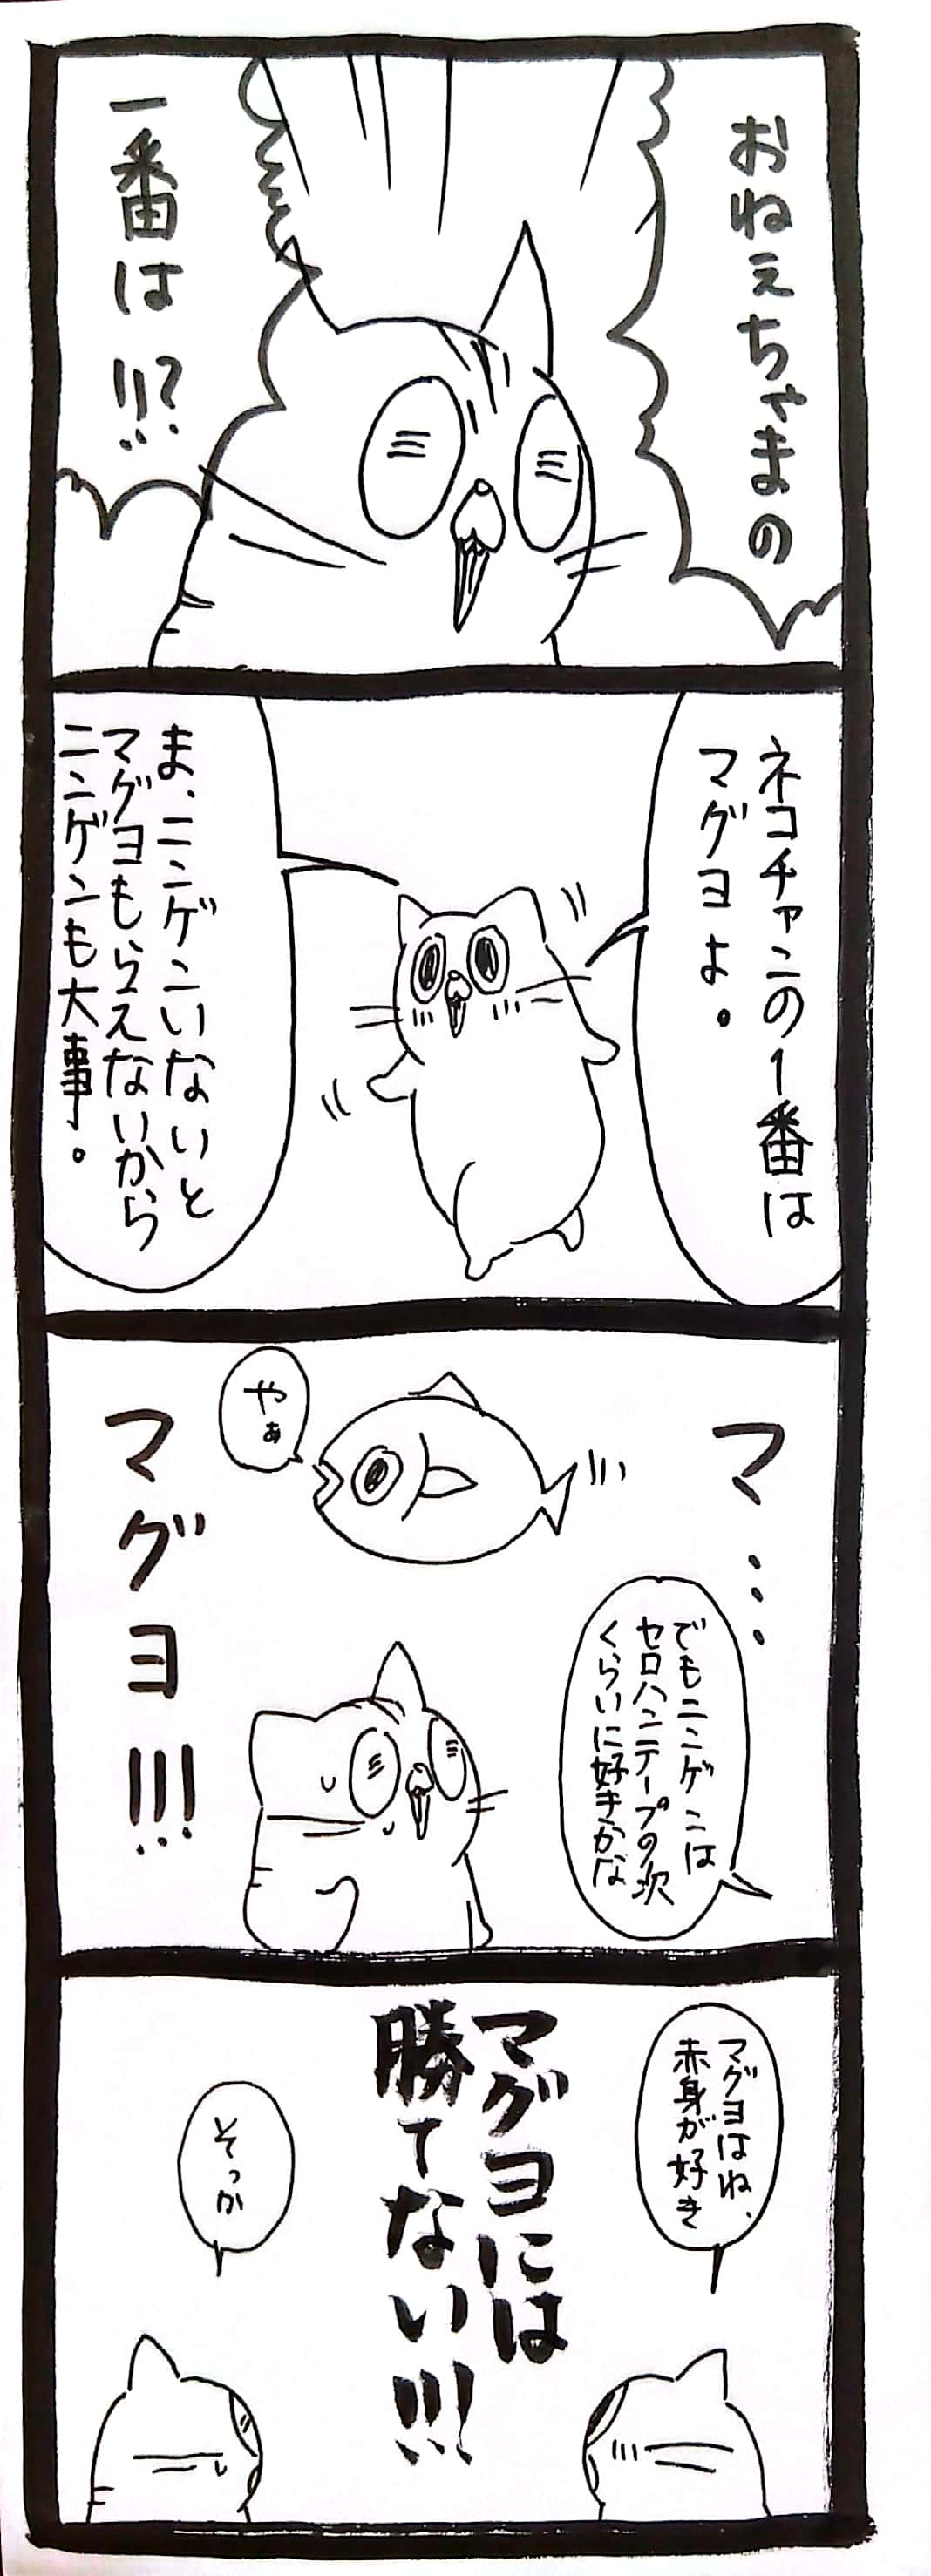 おねぇちゃまの
一番は!!?
ネコチャンの1番は
マグヨよ。
ま、ニンゲンいないと
マグヨもらえないから
ニンゲンも大事。
マ…
でもニンゲンは
セロハンテープの次
くらいに好きかな
やぁ
マグヨ!!!
マグヨはね、
赤身が好き
マグヨには
勝てない!!!
そっか